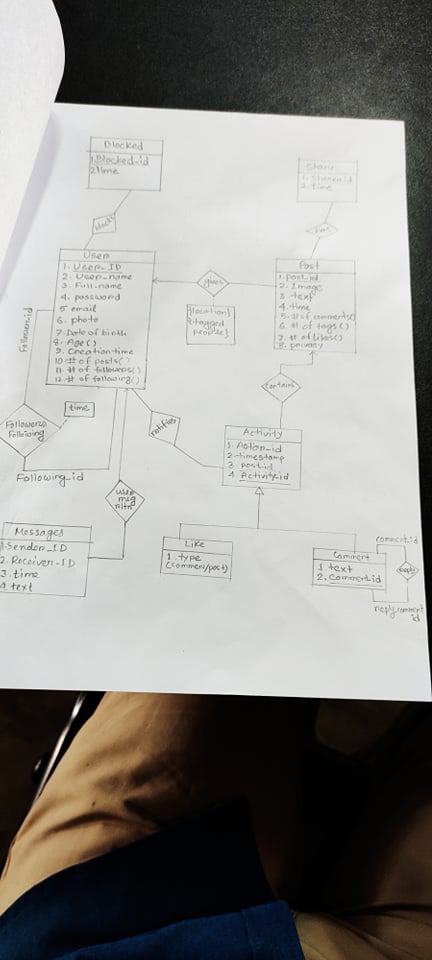 Blocked
1. Blocked_id
2. Time
Share
1. Share_id
2. Time
blocks
has
User
1. User_ID
2. User_name
3. Full-name
4. password
5 email
6. photo
7. Date of birth
8. Age()
9. Creation-time
10. # of posts()
11. # of followers()
12. # of following()
gives
{location}
tagged
people}
Post
1. post_id
2. Image
3. text
4. time
5. # of comments()
6. # of tags()
7. # of likes()
8. privacy
Follower_id
time
Following
Following_id
notifies
contains
Activity
1. Action_id
2. timestamp
3. post_id
4. Activity_id
user
msg
Messages
1. Sender_ID
2. Receiver_ID
3. time
4. text
Like
1. type
(comment/post)
Comment
1. text
2. comment_id
comment_id
reply
reply_comment
id